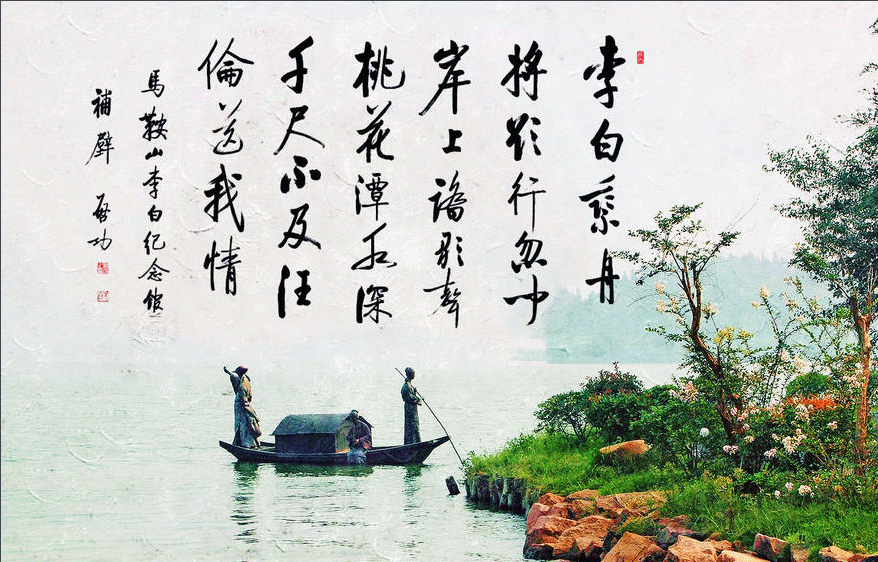 李白乘舟
將欲行忽聞
岸上踏歌聲
桃花潭水深
千尺不及汪
倫送我情
馬鞍山李白紀念館
補壁 啟功